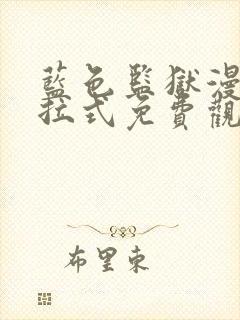 藍色監獄漫
拉式免費觀
布里東